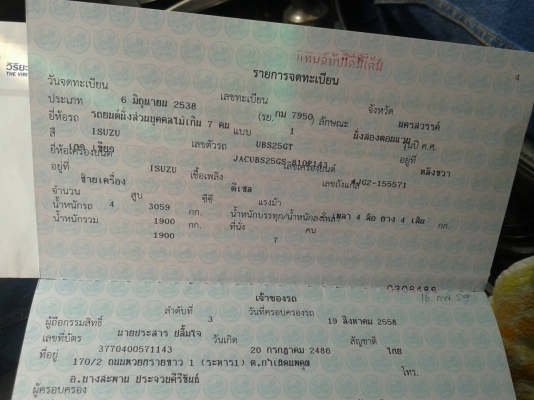 วิริยะ
THE VIRI
4
รายการจดทะเบียน
วันจดทะเบียน 6 มิถุนายน 2538 เลขทะเบียน กม 7950 จังหวัด นครสวรรค์
ประเภท รถยนต์นั่งส่วนบุคคลไม่เกิน 7 คน (รย. 1 ลักษณะ นั่งสองตอนแวน
ยี่ห้อรถ ISUZU แบบ UBS25GT รุ่นปี ค.ศ.
สี เขียว เลขตัวรถ อยู่ที่ หลังขวา
ยี่ห้อเครื่องยนต์ ISUZU เลขเครื่องยนต์ 4JG2-155571
อยู่ที่ ซ้ายเครื่อง เชื้อเพลิง ดีเซล เลขถังแก๊ส
จำนวน 4 สูบ 3059 ซีซี แรงม้า 2 เพลา 4 ล้อ ยาง 4 เส้น
น้ำหนักรถ 1900 กก. น้ำหนักบรรทุก/น้ำหนักลงเพลา กก.
น้ำหนักรวม 1900 กก. ที่นั่ง 7 คน
18 กพ 59
เจ้าของรถ
ลำดับที่ 3 วันที่ครอบครองรถ 19 สิงหาคม 2558
ผู้ถือกรรมสิทธิ์ นายประสาร ปลื้มใจ
เลขที่บัตร 3770400571143 วันเกิด 20 กรกฎาคม 2486 สัญชาติ ไทย
ที่อยู่ 170/2 ถนนหวยทรายขาว 1 ต.กำเนิดนพคุณ โทร.
อ.บางสะพาน ประจวบคีรีขันธ์
ผู้ครอบครอง